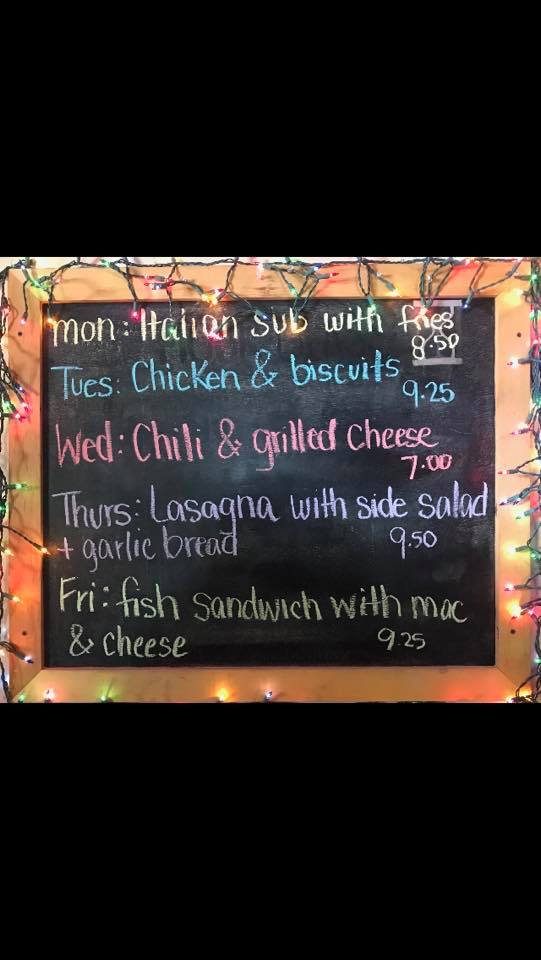 mon: Italian sub with fries
8.50
Tues: Chicken & biscuits
9.25
Wed: Chili & grilled cheese
7.00
Thurs: Lasagna with side salad
+ garlic bread 9.50
Fri: fish sandwich with mac
& cheese 9.25